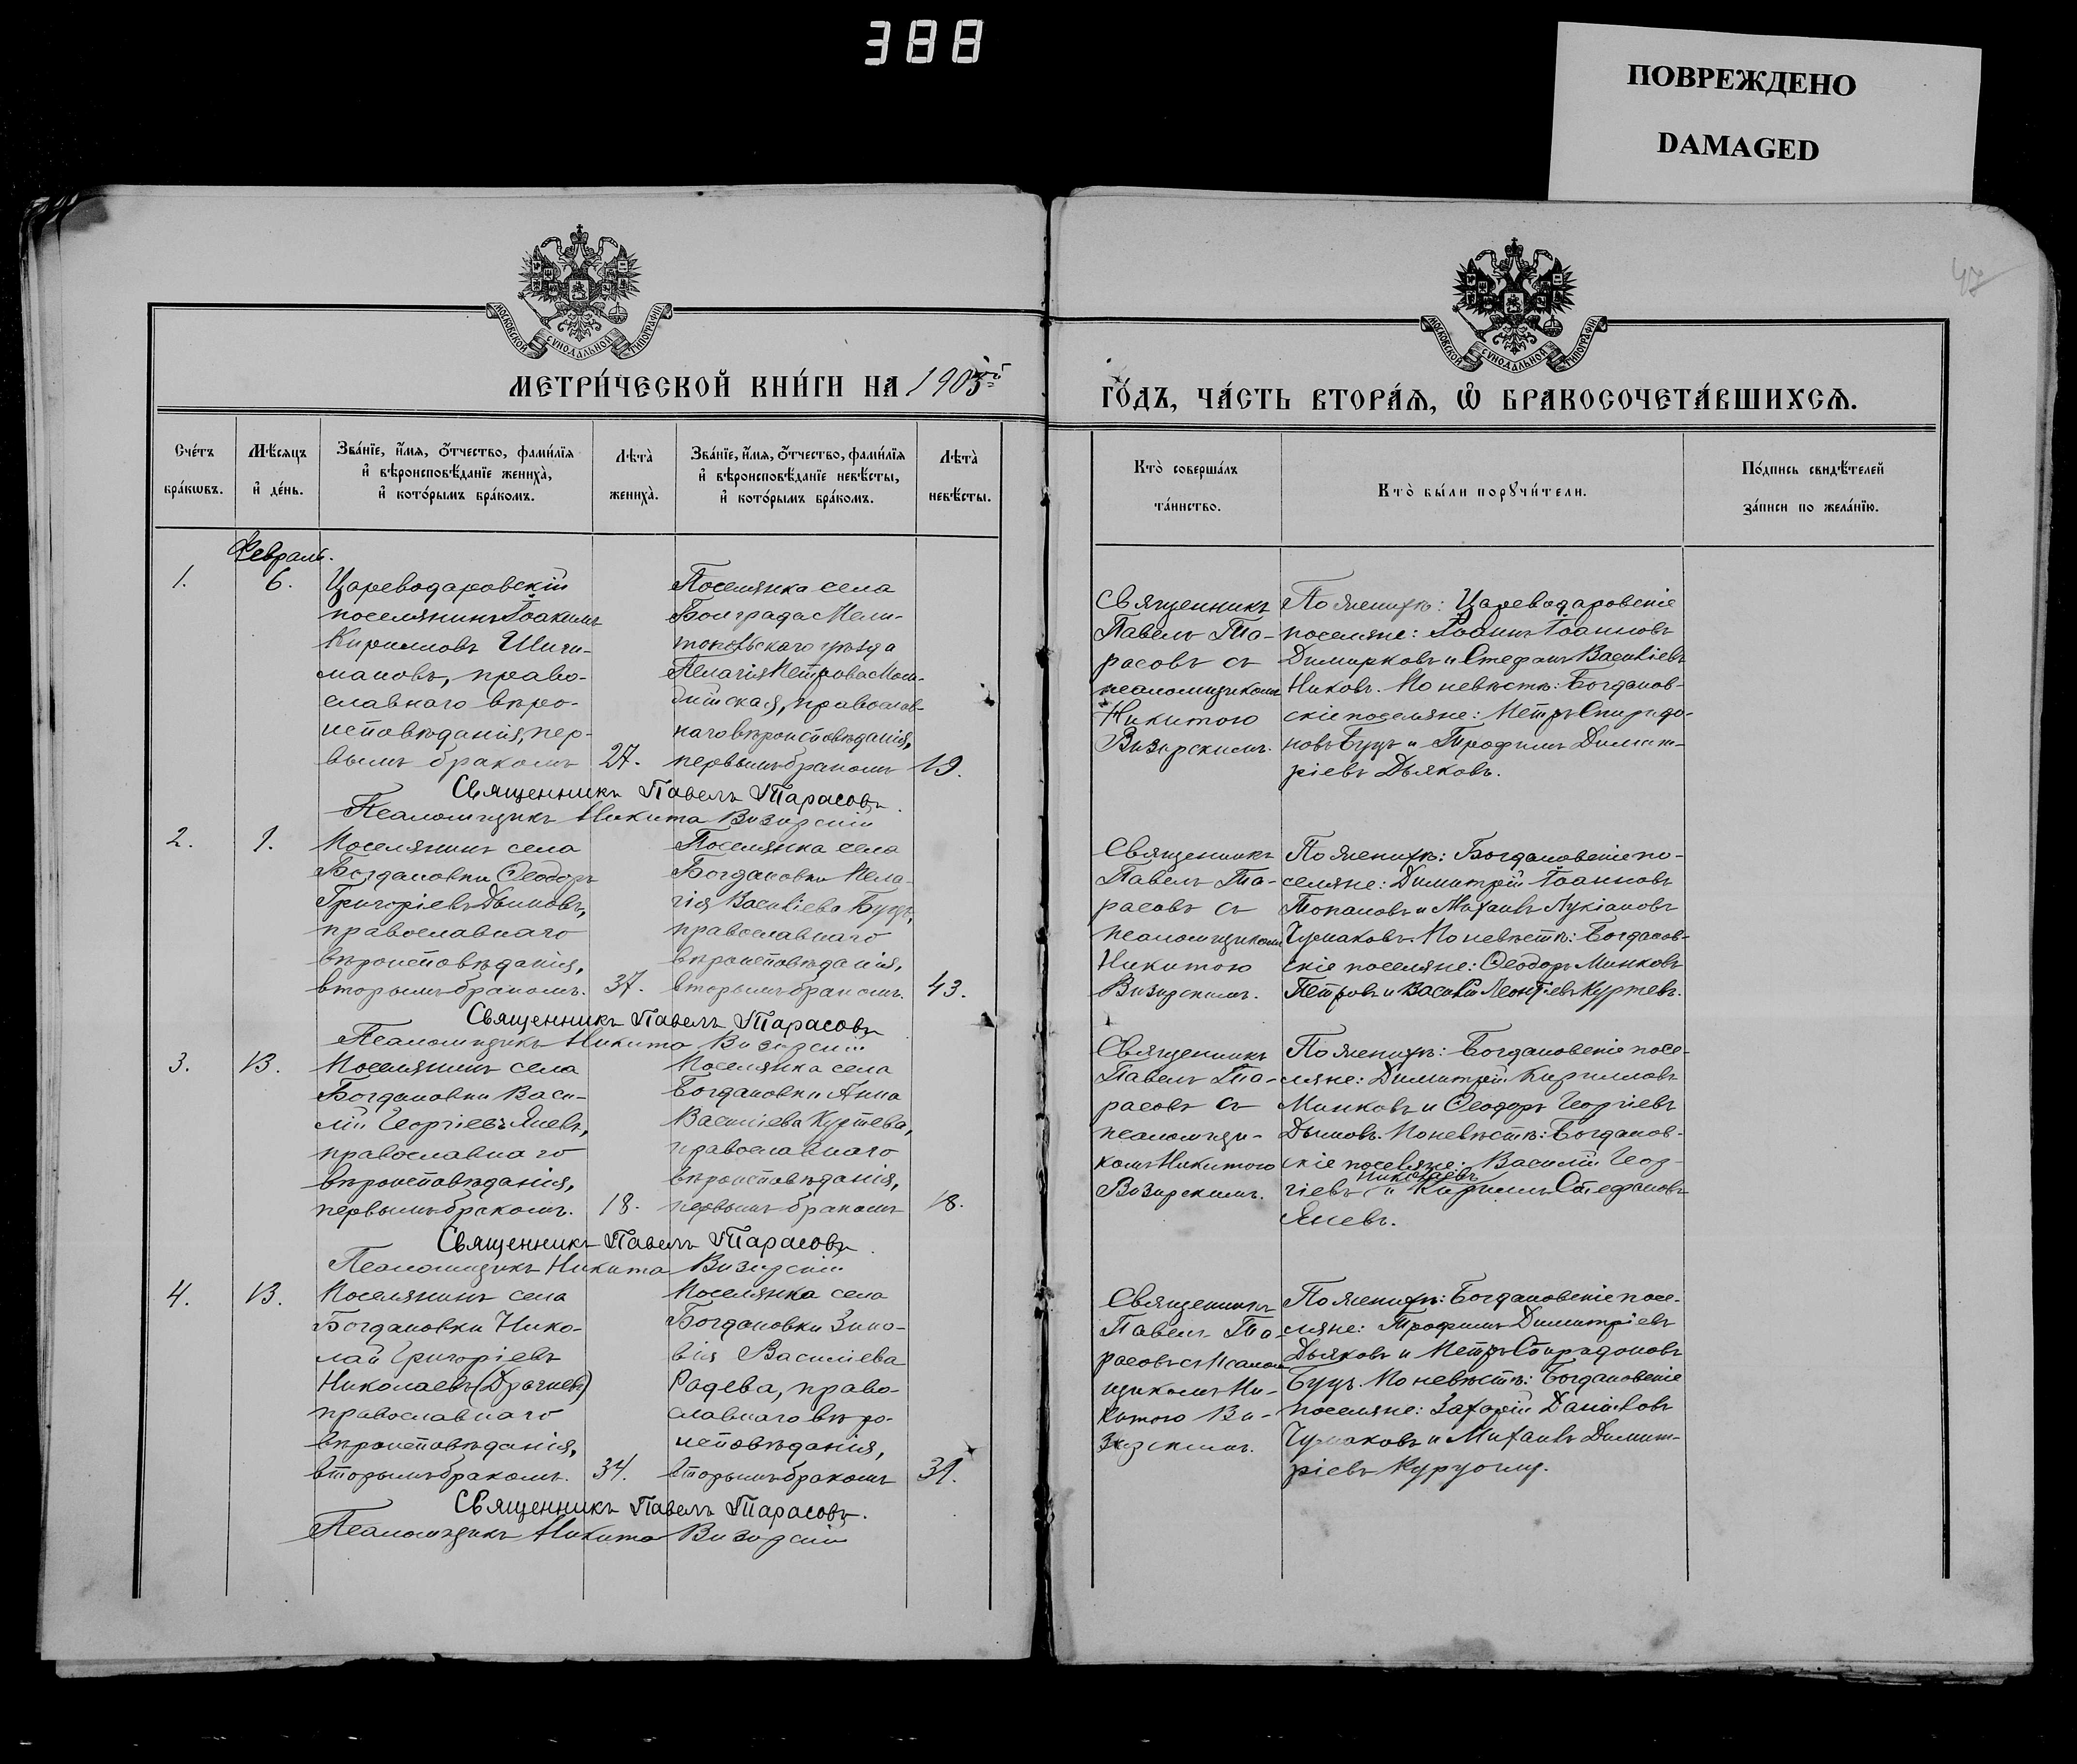 388
ПОВРЕЖДЕНО
DAMAGED
47
МОСКОВСКОЙ СѴНОДАЛЬНОЙ ТИПОГРАФІИ
МОСКОВСКОЙ СѴНОДАЛЬНОЙ ТИПОГРАФІИ
МЕТРИ́ЧЕСКОЙ КНИ́ГИ НА 1903 ой
ГО́ДЪ, ЧА́СТЬ ВТОРА́Ѧ, Ѡ҆ БРАКОСОЧЕТА́ВШИХСѦ.
Сче́тъ
бра́кѡвъ.
Мѣ́сяцъ
и҆ де́нь.
Зва́нїе, и҆́мѧ, ѻ҆́тчество, фами́лїѧ
и҆ вѣроисповѣ́данїе жениха̀,
и҆ кото́рымъ бра́комъ.
Лѣта̀
жениха̀.
Зва́нїе, и҆́мѧ, ѻ҆́тчество, фами́лїѧ
и҆ вѣроисповѣ́данїе невѣ́сты,
и҆ кото́рымъ бра́комъ.
Лѣта̀
невѣ́сты.
Кто̀ соверша́лъ
та́инство.
Кто̀ бы́ли порꙋчи́тели.
По́дпись свидѣ́телей
за́писи по жела́нїю.
Февраль.
1.
6.
Цареводаровскій
поселянинъ Іоакимъ
Кирилловъ Шиши-
мановъ, право-
славнаго вѣро-
исповѣданія, пер-
вымъ бракомъ
27.
Поселянка села
Болграда Мели-
топольскаго уѣзда
Пелагія Петрова
православ-
наго вѣроисповѣданія,
первымъ бракомъ
19.
Священникъ
Павелъ Та-
расовъ съ
псаломщикомъ
Никитою
Визирскимъ.
По женихѣ: Цареводаровскіе
поселяне: Іоаннъ Іоанновъ
Димирковъ и Стефанъ Василіевъ
Никовъ. По невѣстѣ: Богданов-
скіе поселяне: Петръ Спиридо-
новъ Буцъ и Трофимъ Димит-
ріевъ Дьяковъ.
Священникъ Павелъ Тарасовъ.
Псаломщикъ Никита Визирскій
2.
9.
Поселянинъ села
Богдановки Ѳеодоръ
Григоріевъ Дымовъ,
православнаго
вѣроисповѣданія,
вторымъ бракомъ.
37.
Поселянка села
Богдановки Пела-
гія Василіева Буцъ,
православнаго
вѣроисповѣданія,
вторымъ бракомъ.
43.
Священникъ
Павелъ Та-
расовъ съ
псаломщикомъ
Никитою
Визирскимъ.
По женихѣ: Богдановскіе по-
селяне: Димитрій Іоанновъ
Топаловъ и Михаилъ Лукіановъ
Чумаковъ. По невѣстѣ: Богданов-
скіе поселяне: Ѳеодоръ Минковъ
Петровъ и Василій Леонтіевъ Куртевъ.
Священникъ Павелъ Тарасовъ
Псаломщикъ Никита Визирскій
3.
13.
Поселянинъ села
Богдановки Васи-
лій Георгіевъ Яневъ,
православнаго
вѣроисповѣданія,
первымъ бракомъ.
18.
Поселянка села
Богдановки Анна
Василіева Куртева,
православнаго
вѣроисповѣданія,
первымъ бракомъ
18.
Священникъ
Павелъ Та-
расовъ съ
псаломщи-
комъ Никитою
Визирскимъ.
По женихѣ: Богдановскіе посе-
ляне: Димитрій Кирилловъ
Минковъ и Ѳеодоръ Георгіевъ
Дымовъ. По невѣстѣ: Богданов-
скіе поселяне: Василій Геор-
Николаевъ
гіевъ и Кириллъ Стефановъ
Яневъ.
Священникъ Павелъ Тарасовъ.
Псаломщикъ Никита Визирскій
4.
13.
Поселянинъ села
Богдановки Нико-
лай Григоріевъ
Николаевъ (Драгневъ)
православнаго
вѣроисповѣданія,
вторымъ бракомъ.
34.
Поселянка села
Богдановки Зино-
вія Василіева
Радева, право-
славнаго вѣро-
исповѣданія,
вторымъ бракомъ
31.
Священникъ
Павелъ Та-
расовъ съ псалом-
щикомъ Ни-
китою Ви-
зирскимъ.
По женихѣ: Богдановскіе посе-
ляне: Трофимъ Димитріевъ
Дьяковъ и Петръ Спиридоновъ
Буцъ. По невѣстѣ: Богдановскіе
поселяне: Захарій Даніиловъ
Чумаковъ и Михаилъ Димит-
ріевъ Куруоглу.
Священникъ Павелъ Тарасовъ.
Псаломщикъ Никита Визирскій